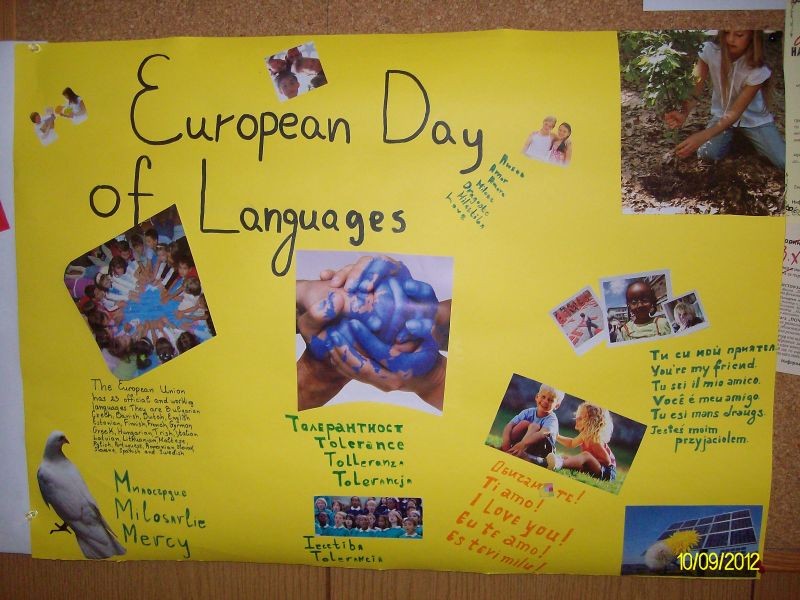 European Day
of Languages
Любов
Amor
Amore
Miłość
Dragoste
Milestiba
Love
The European Union
has 23 official and working
languages They are Bulgarian
Czech, Danish, Dutch, English
Estonian, Finnish, French, German
Greek, Hungarian, Irish, Italian
Latvian, Lithuanian, Maltese,
Polish, Portuguese, Romanian, Slovak,
Slovene, Spanish and Swedish
Милосърдие
Milosārlie
Mercy
Толерантност
Tolerance
Tolleranza
Tolerancja
Iecetiba
Tolerancia
Ти си мой приятел.
You're my friend.
Tu sei il mio amico.
Você é meu amigo.
Tu esi mans draugs.
Jesteś moim
przyjacielem.
Обичам те!
Ti amo!
I love you!
Eu te amo!
Es tevi milu!
10/09/2012